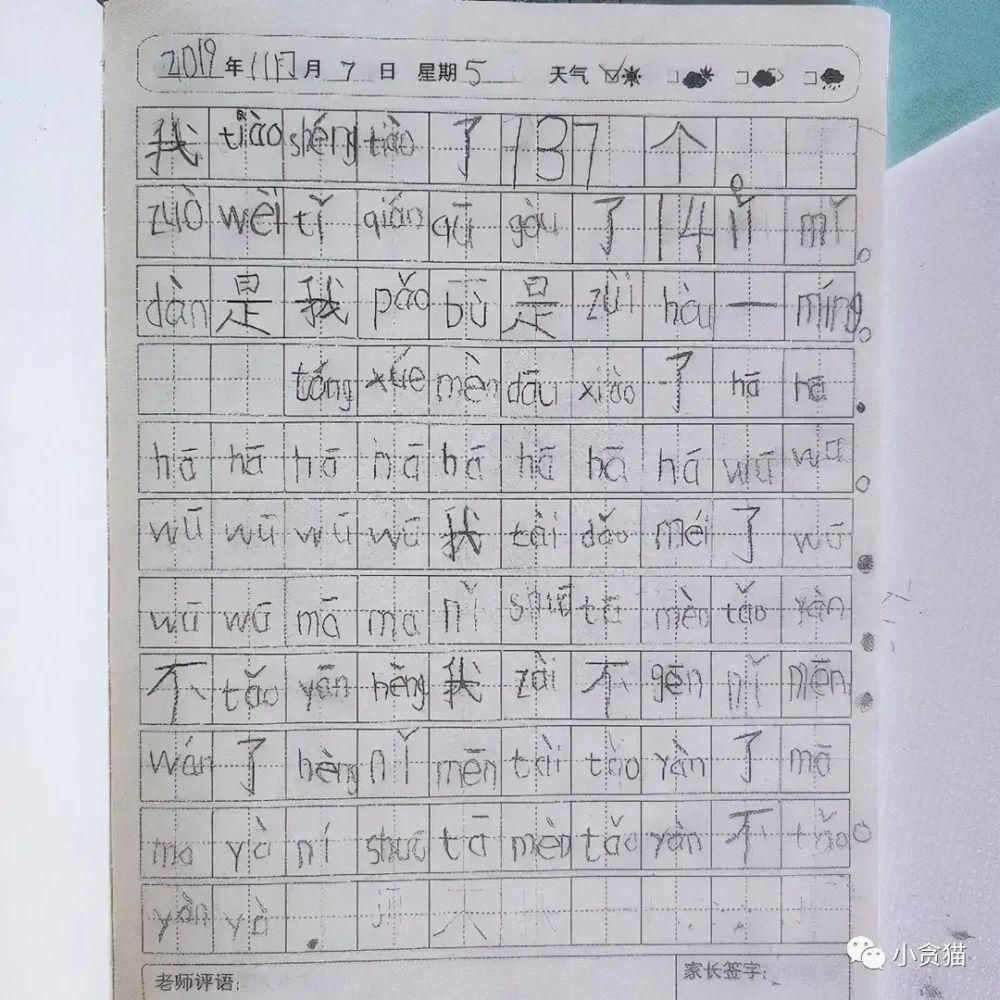 2019年11月月7日 星期5 天气
我 tiào shéng tiào 了 137 个.
zuò wèi tǐ qián qū gòu 了 14 lǐ mǐ。
dàn 是 我 pǎo bù 是 zùi hòu 一 míng。
tóng xúe mèn dōu xiào 了 hā hā
hā hā hā hā hā hā hā hā wū wū。
wū wū wū wū 我 tài dǎo méi 了 wū
wū wū mā ma nǐ shuō tā mèn tǎo yàn
不 tǎo yàn hèng 我 zài 不 gēn nǐ mēn
wán 了 hèng nǐ mēn tài tǎo yàn 了 mā
ma yà ní shuō tā mèn tǎo yàn 不 tǎo。
yàn yà.
老师评语:
家长签字:
小贪猫